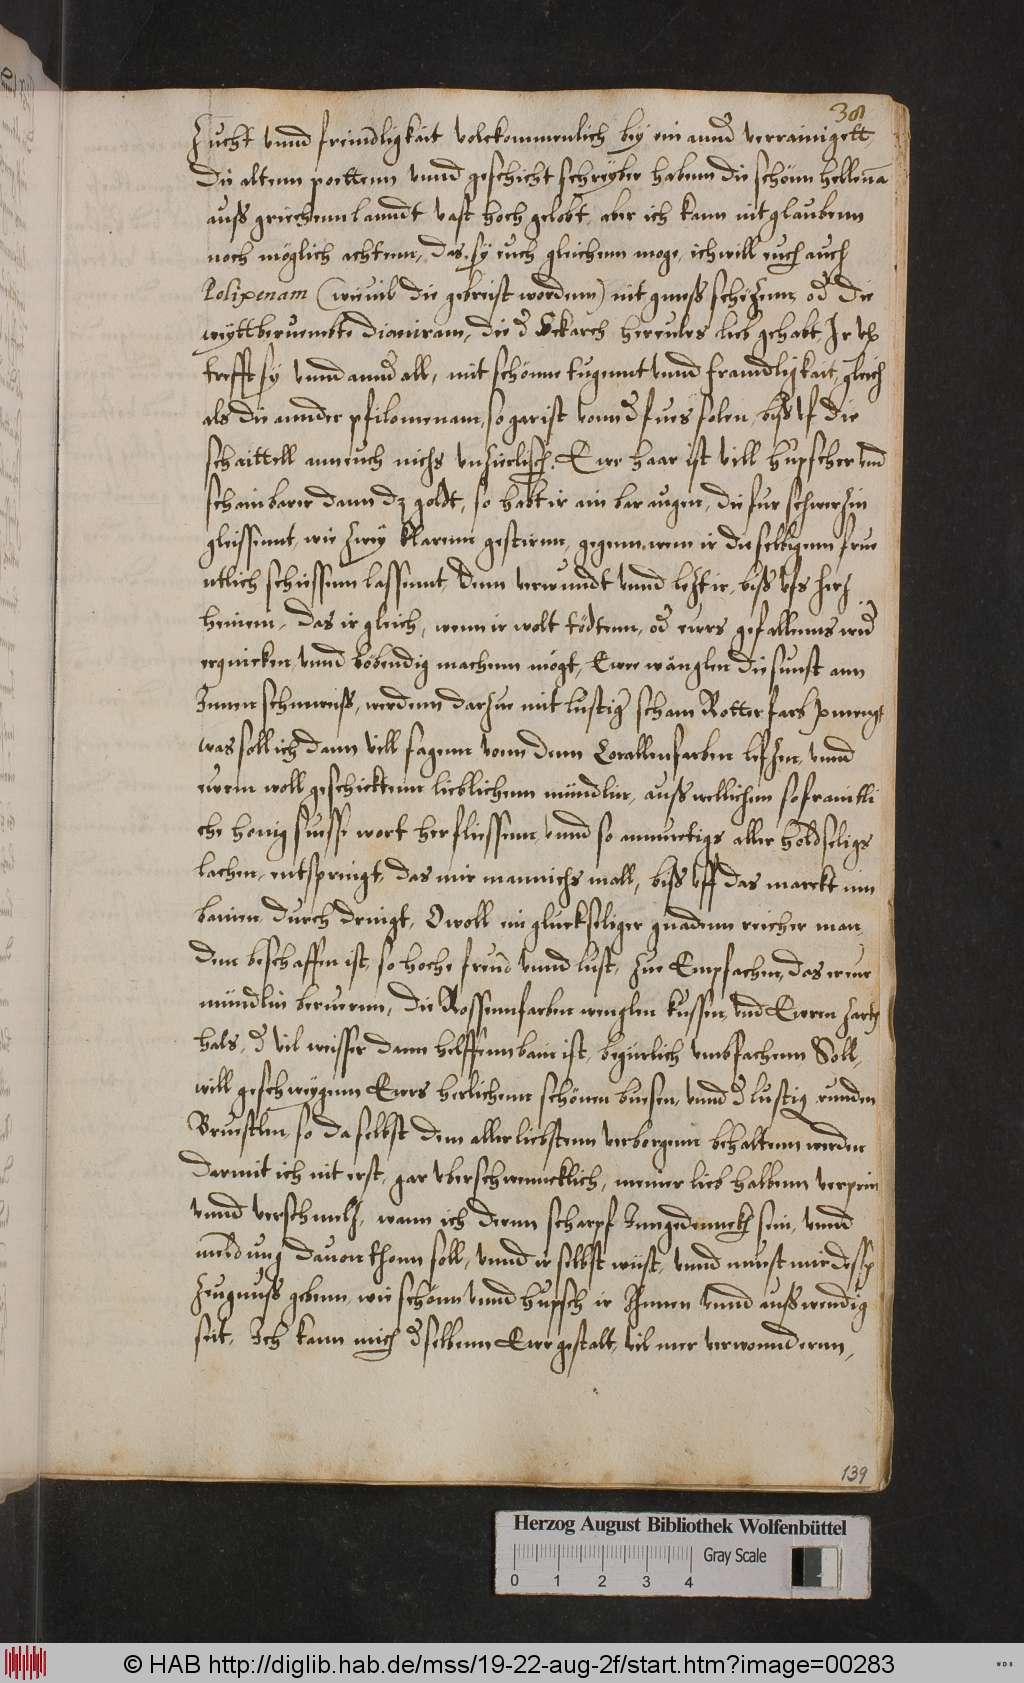 38
Zucht vnnd freindligkait volckommenlich bey ein annd verrainigett,
Die altenn poettenn vnnd geschicht schreyber habenn die schönn hellena
auß griechenn lanndt vast hoch gelobt, aber ich kann nit glaubenn
noch möglich achtenn, das sy euch gleichenn moge, ich will euch auch
Polixenam (wieuil die gebreist wordenn) nit gmeß schezenn, od die
weyttberuembte Dianiram, die d starch hercules lieb gehabt, Ir vb
trefft sy vnnd annd all, mit schönne tugennt vnnd fraindligkait, gleich
als die annder philomenam, so gar ist vonn d fues solen, biß vf die
schaittell ann euch nichs vnzierlich. Ewr haar ist vill hupscher vnd
scheinbarer dann dz goldt, so habt ir ain bar augen, die fur schwerzin
gleissennt, wie zwey klarenn gestirnn, gegenn wem ir dieselbigenn frue
ntlich schiessenn lassennt, denn verwundt vnnd lezt ir, biß vfs herz
heinein, das ir gleich, wenn ir wolt tödtenn, od ewrs gefallenns wid
erquicken vnnd lebendig machenn mögt, Ewre wänglen die sunst ann
Innen schneweiß, werdenn darzue mit lustig scham Rotter farb
was soll ich dann vill sagenn vonn denn Corallenfarben lefzen, vnnd
ewrm woll geschicktenn lieblichenn mündlin, auß wellichem so fraintli
che honig suesse wort herfliessenn, vnnd so anmuetigs aller holdseligs
lachen, entspringt, das mir mannichs mall, biß vff das marckt inn
bainen, durch dringt, O woll ein gluckseliger gnadenn reicher man,
dem beschaffen ist, so hoche freud vnnd lust, zue Empfachen, das er eur
mündlin beruerenn, die Rossennfarben wenglen kussen, vnd Ewren zart
hals, d vil weisser dann helffennbain ist, begirlich vmbfachenn Soll,
will geschweygenn Ewrs herlichenn schönen buesen, vnnd d lustig runden
Bruestlen, so daselbst dem aller liebstenn verborgenn behaltenn werden
darmit ich nit erst, gar vberschwencklich, meiner lieb halbenn verprin
vnnd verschmelz, wann ich derenn scharpf Inngedennckh sein, vnnd
meldung dauon thonn soll, vnnd ir selbst wist, vnnd muest mir dess
Zeugnuß gebenn, wie schönn vnnd hupsch ir Ihnnen vnnd außwendig
seit, Ich kann mich d selbenn Ewr gestalt, vil mer verwonndernn,
139
Herzog August Bibliothek Wolfenbüttel
Gray Scale
0 1 2 3 4
© HAB http://diglib.hab.de/mss/19-22-aug-2f/start.htm?image=00283